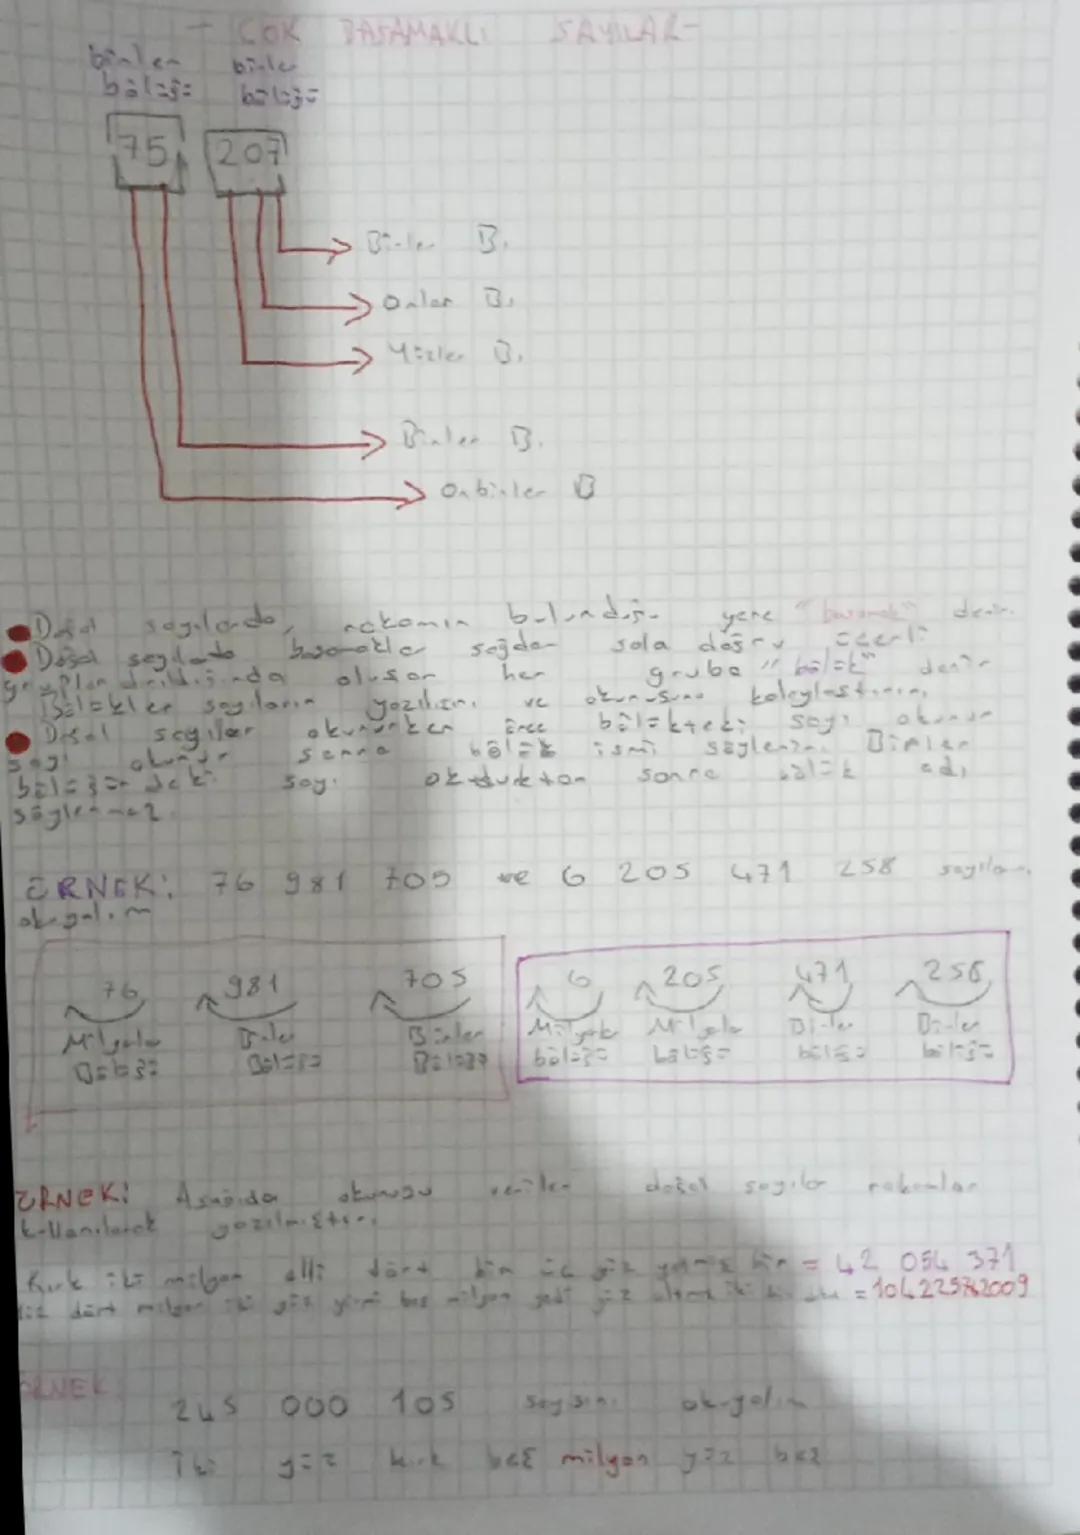 - ÇOK BASAMAKLI SAYILAR -
binler birler
bölüğü bölüğü
75 207
Birler B.
Onlar B.
Yüzler B.
Binler B.
Onbinler B
Doğal sayılarda, rakamın bulunduğu yere "basamak" denir.
Doğal sayılarda basamaklar sağdan sola doğru üçerli
gruplandırıldığında oluşan her gruba "bölük" denir
Bölükler sayıların yazılışını ve okunuşunu kolaylaştırır.
Doğal sayılar okunurken önce bölükteki sayı okunur
sayı okunur sonra bölük ismi söylenir. Birler
bölüğündeki sayı okuduktan sonra bölük adı
söylenmez.
ÖRNEK: 76 981 705 ve 6 205 471 258 sayıları
okuyalım
76 981 705 6 205 471 258
Milyonlar Binler Birler Milyonlar Binler Birler
Bölüğü Bölüğü Bölüğü bölüğü bölüğü bölüğü bölüğü
ÖRNEK: Aşağıda okunuşu verilen doğal sayılar rakamlar
kullanılarak yazılmıştır.
Kırk iki milyon elli dört bin üç yüz yetmiş bir = 42 054 371
yüz dört milyar iki yüz yirmi beş milyon yedi yüz altmış iki bin dokuz = 104225762009
ÖRNEK
245 000 105 sayısını okuyalım
İki yüz kırk beş milyon yüz beş